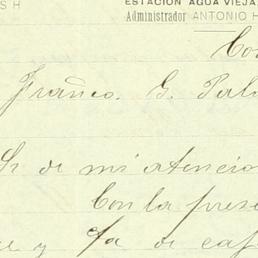 S H
ESTACION AGUA VIEJA
Administrador ANTONIO H
Co
Franco. G. Pal
Sr de mi atencio
Con la prese
e y fa de caf